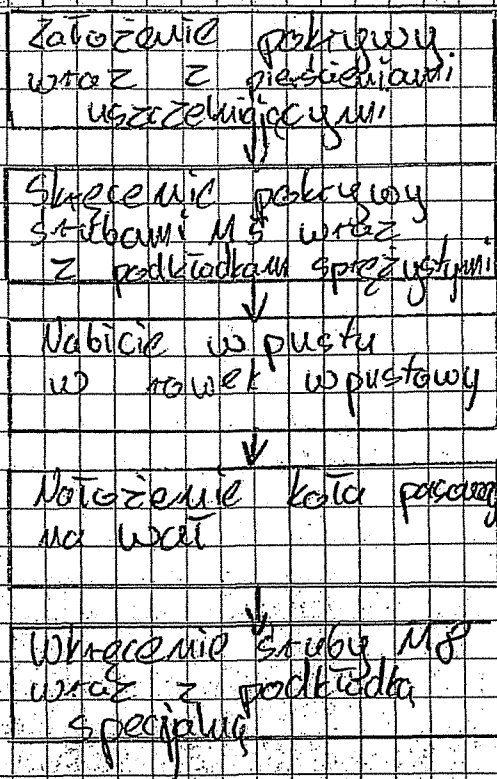 Założenie pokrywy
wraz z pierścieniami
uszczelniającymi
Skręcenie pokrywy
śrubami M5 wraz
z podkładkam sprężystymi
Nabicie wpustu
w rowek wpustowy
Nałożenie koła pasoweg
na wał
Wkręcenie śruby M8
wraz z podkładką
specjalną